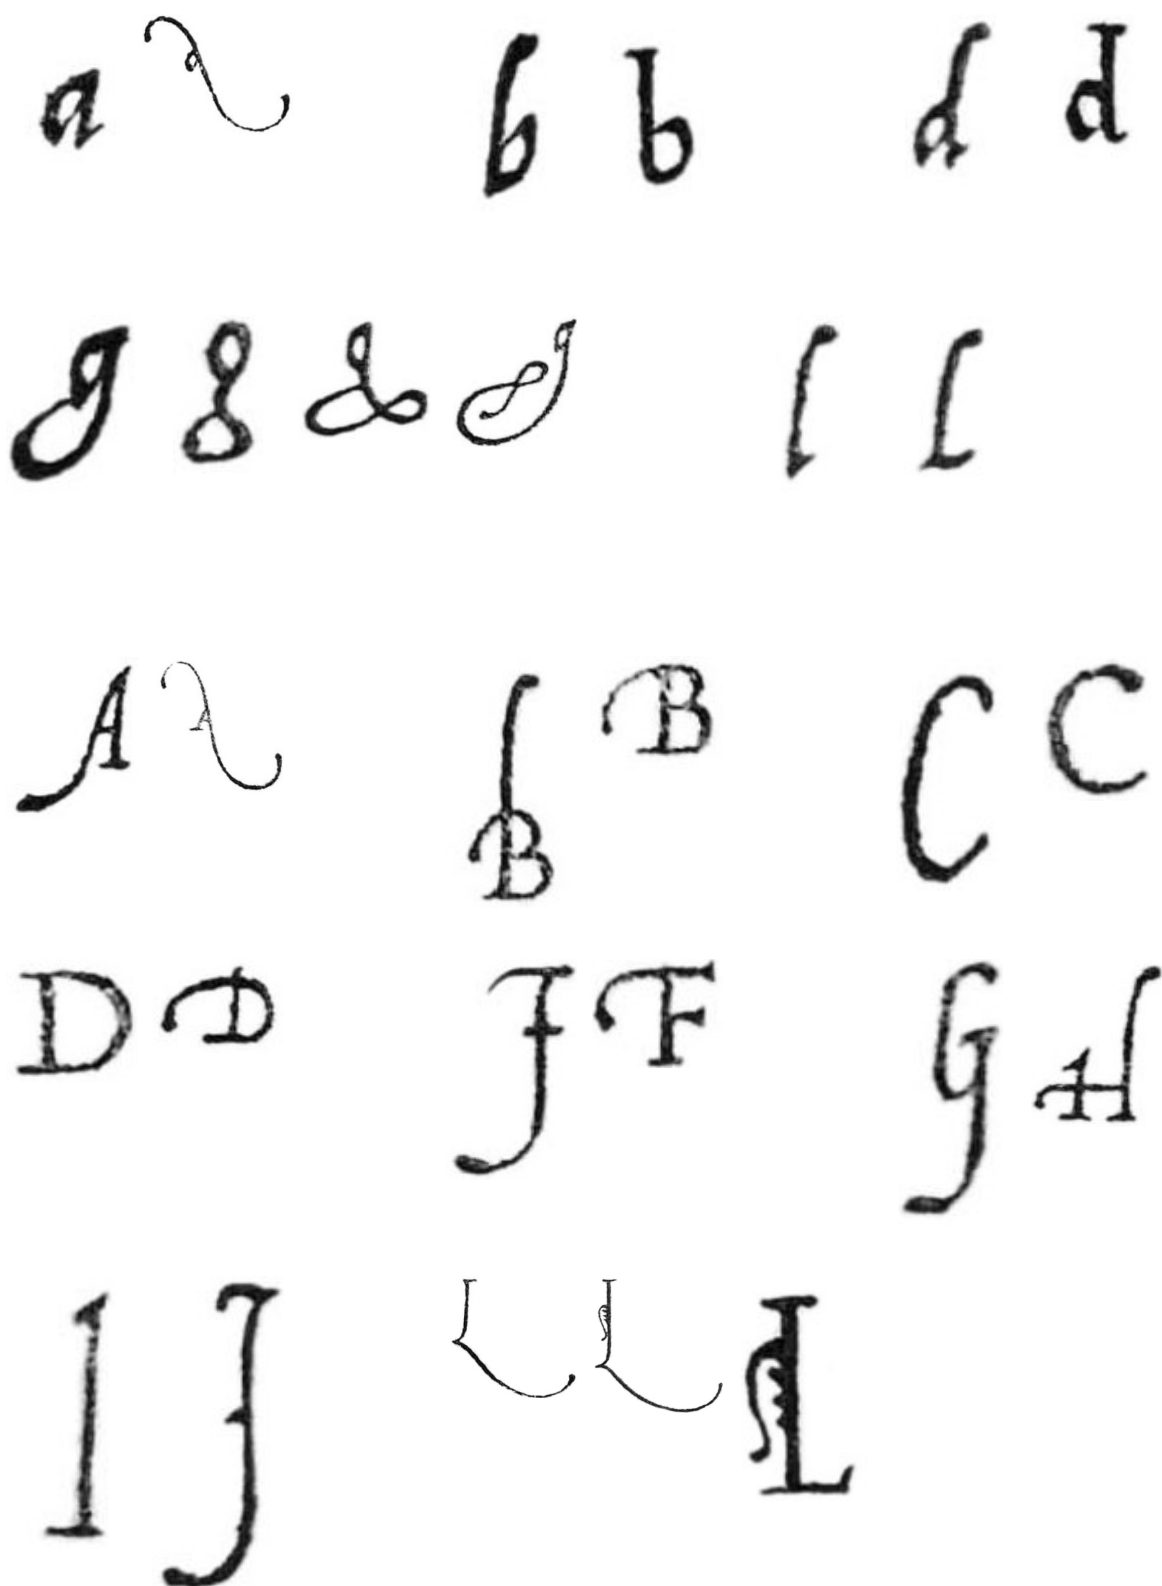 a a b b d d
g g g g l l
A A B B C C
D D F F G H
I J L L L